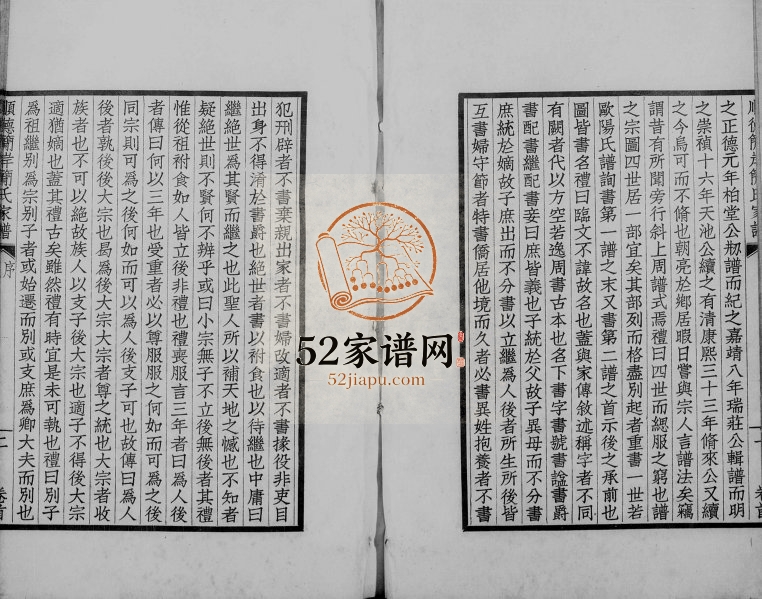 之正德元年柏堂公刱譜而紀之嘉靖八年瑞莊公輯譜而明
之崇禎十六年天池公續之有清康熙三十三年脩來公又續
之今烏可而不脩也朝亮於鄉居暇日嘗與宗人言譜法矣竊
謂昔有所聞旁行斜上周譜式焉禮曰四世而緦服之窮也譜
之宗圖四世居一部宜矣其部列而格盡別起者重書一世若
歐陽氏譜詢書第一譜之末又書第二譜之首示後之承前也
圖皆書名禮曰臨文不諱故名也蓋與家傳敘述稱字者不同
有闕者代以方空若逸周書古本也名下書字書號書諡書爵
書配書繼配書妾曰庶皆義也子統於父故子異母而不分書
庶統於嫡故子庶出而不分書以立繼爲人後者所生所後皆
互書婦守節者特書僑居他境而久者必書異姓抱養者不書
犯刑辟者不書棄親出家者不書婦改適者不書掾役非吏目
出身不得淆於書爵也絕世者書以祔食也以待繼也中庸曰
繼絕世爲其賢而繼之也此聖人所以補天地之憾也不知者
疑絕世則不賢何不辨乎或曰小宗無子不立後無後者其禮
惟從祖祔食如人皆立後非禮也禮喪服言三年者曰爲人後
者傳曰何以三年也受重者必以尊服服之何如而可爲之後
同宗則可爲之後何如而可以爲人後支子可也故傳曰爲人
後者孰後後大宗也曷爲後大宗大宗者尊之統也大宗者收
族者也不可以絕故族人以支子後大宗也適子不得後大宗
適猶嫡也蓋其禮古矣雖然禮有時宜是未可執也禮曰別子
爲祖繼別爲宗別子者或始遷而別或支庶爲卿大夫而別也
順德簡岸簡氏家譜 序 二 卷首
52家谱网
52jiapu.com